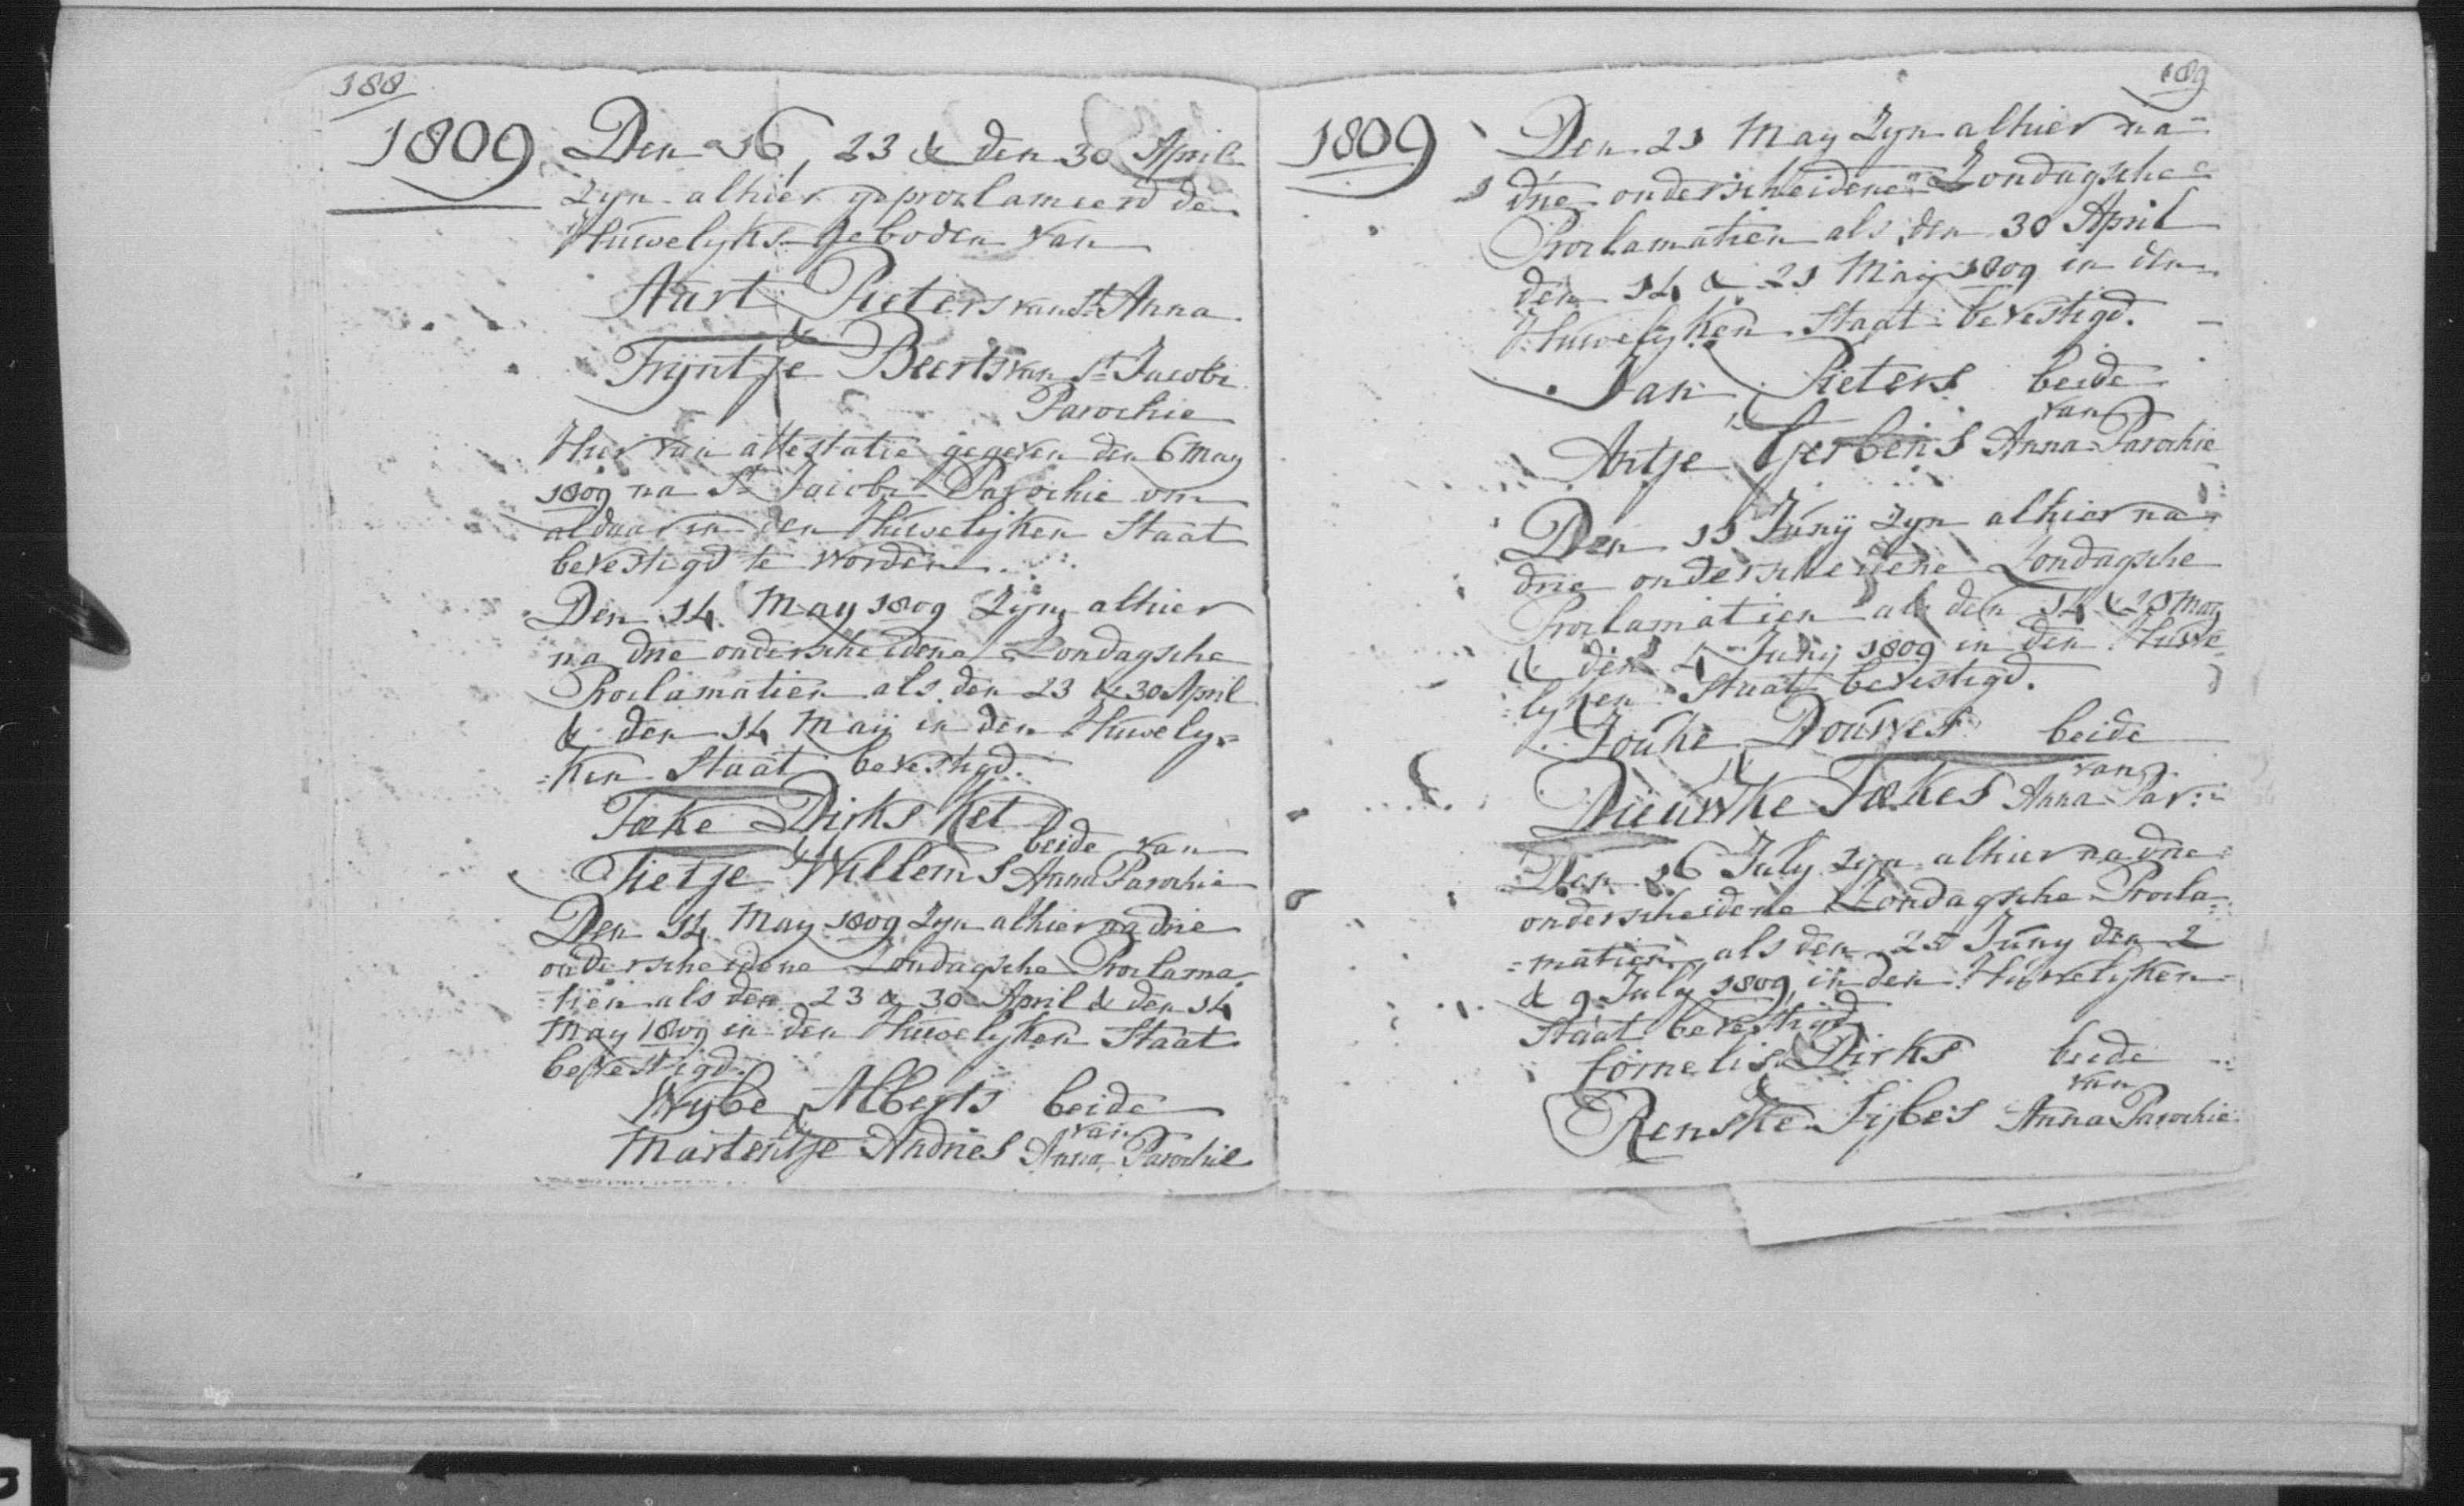 188
1809 Den 16, 23 & den 30 April
zyn alhier geproclameerd de
Huwelyks-geboden van
Aart Pieters van St. Anna
&
Trijntje Beerts van St. Jacobi
Parochie
Hier van attestatie gegeven den 6 may
1809 na St. Jacobi Parochie om
aldaar in den Huwelijken Staat
bevestigd te worden.
Den 14 May 1809 Zijn alhier
na drie onderscheidene Zondagsche
Proclamatien als den 23 & 30 April
& den 14 Maij in den Huwely=
=ken Staat bevestigd.
Tæke Dirks Ket
& beide van
Tietje Willems Anna Parochie
Den 14 May 1809 Zyn alhier na drie
onderscheidene Zondagsche Proclama
=tien als den 23 & 30 April & den 14
May 1809 in den Huwelyken Staat
bevestigd.
Wybe Alberts beide
& van
Martentje Andries Anna Parochie
189
1809 Den 21 May Zyn alhier na
drie onderscheidene Zondagsche
Proclamatien als den 30 April
den 14 & 21 May 1809 in den
Huwelyken Staat bevestigd.
Jan Pieters beide
& van
Antje Gerbens Anna-Parochie
Den 11 Junij Zyn alhier na
drie onderscheidene Zondagsche
Proclamatien als den 14 & 21 May
& den 4 Junij 1809 in den Huwe
=lyken Staat bevestigd.
Jouke Douwes beide
& van
Dieuwke Tækes Anna-Par:
Den 16 July zyn alhier na drie
onderscheidene Zondagsche Procla=
=matien als den 25 Juny den 2
& 9 July 1809 in den Huwelijken
Staat bevestigd
Cornelis Dirks beide
& van
Renske Sijbes Anna Parochie